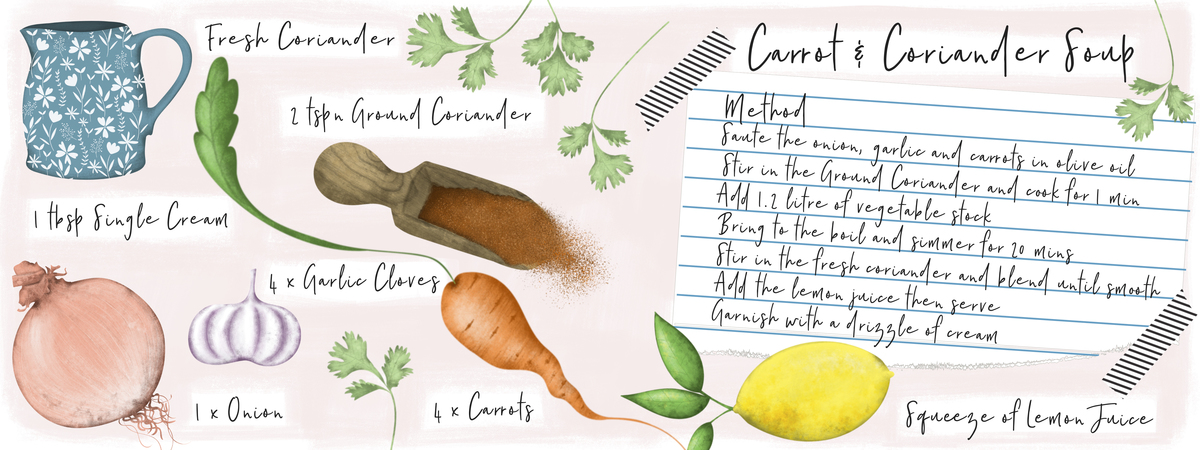 Fresh Coriander
2 tspn Ground Coriander
1 tbsp Single Cream
4 x Garlic Cloves
1 x Onion
4 x Carrots
Carrot & Coriander Soup
Method
Saute the onion, garlic and carrots in olive oil
Stir in the Ground Coriander and cook for 1 min
Add 1.2 litre of vegetable stock
Bring to the boil and simmer for 20 mins
Stir in the fresh coriander and blend until smooth
Add the lemon juice then serve
Garnish with a drizzle of cream
Squeeze of Lemon Juice